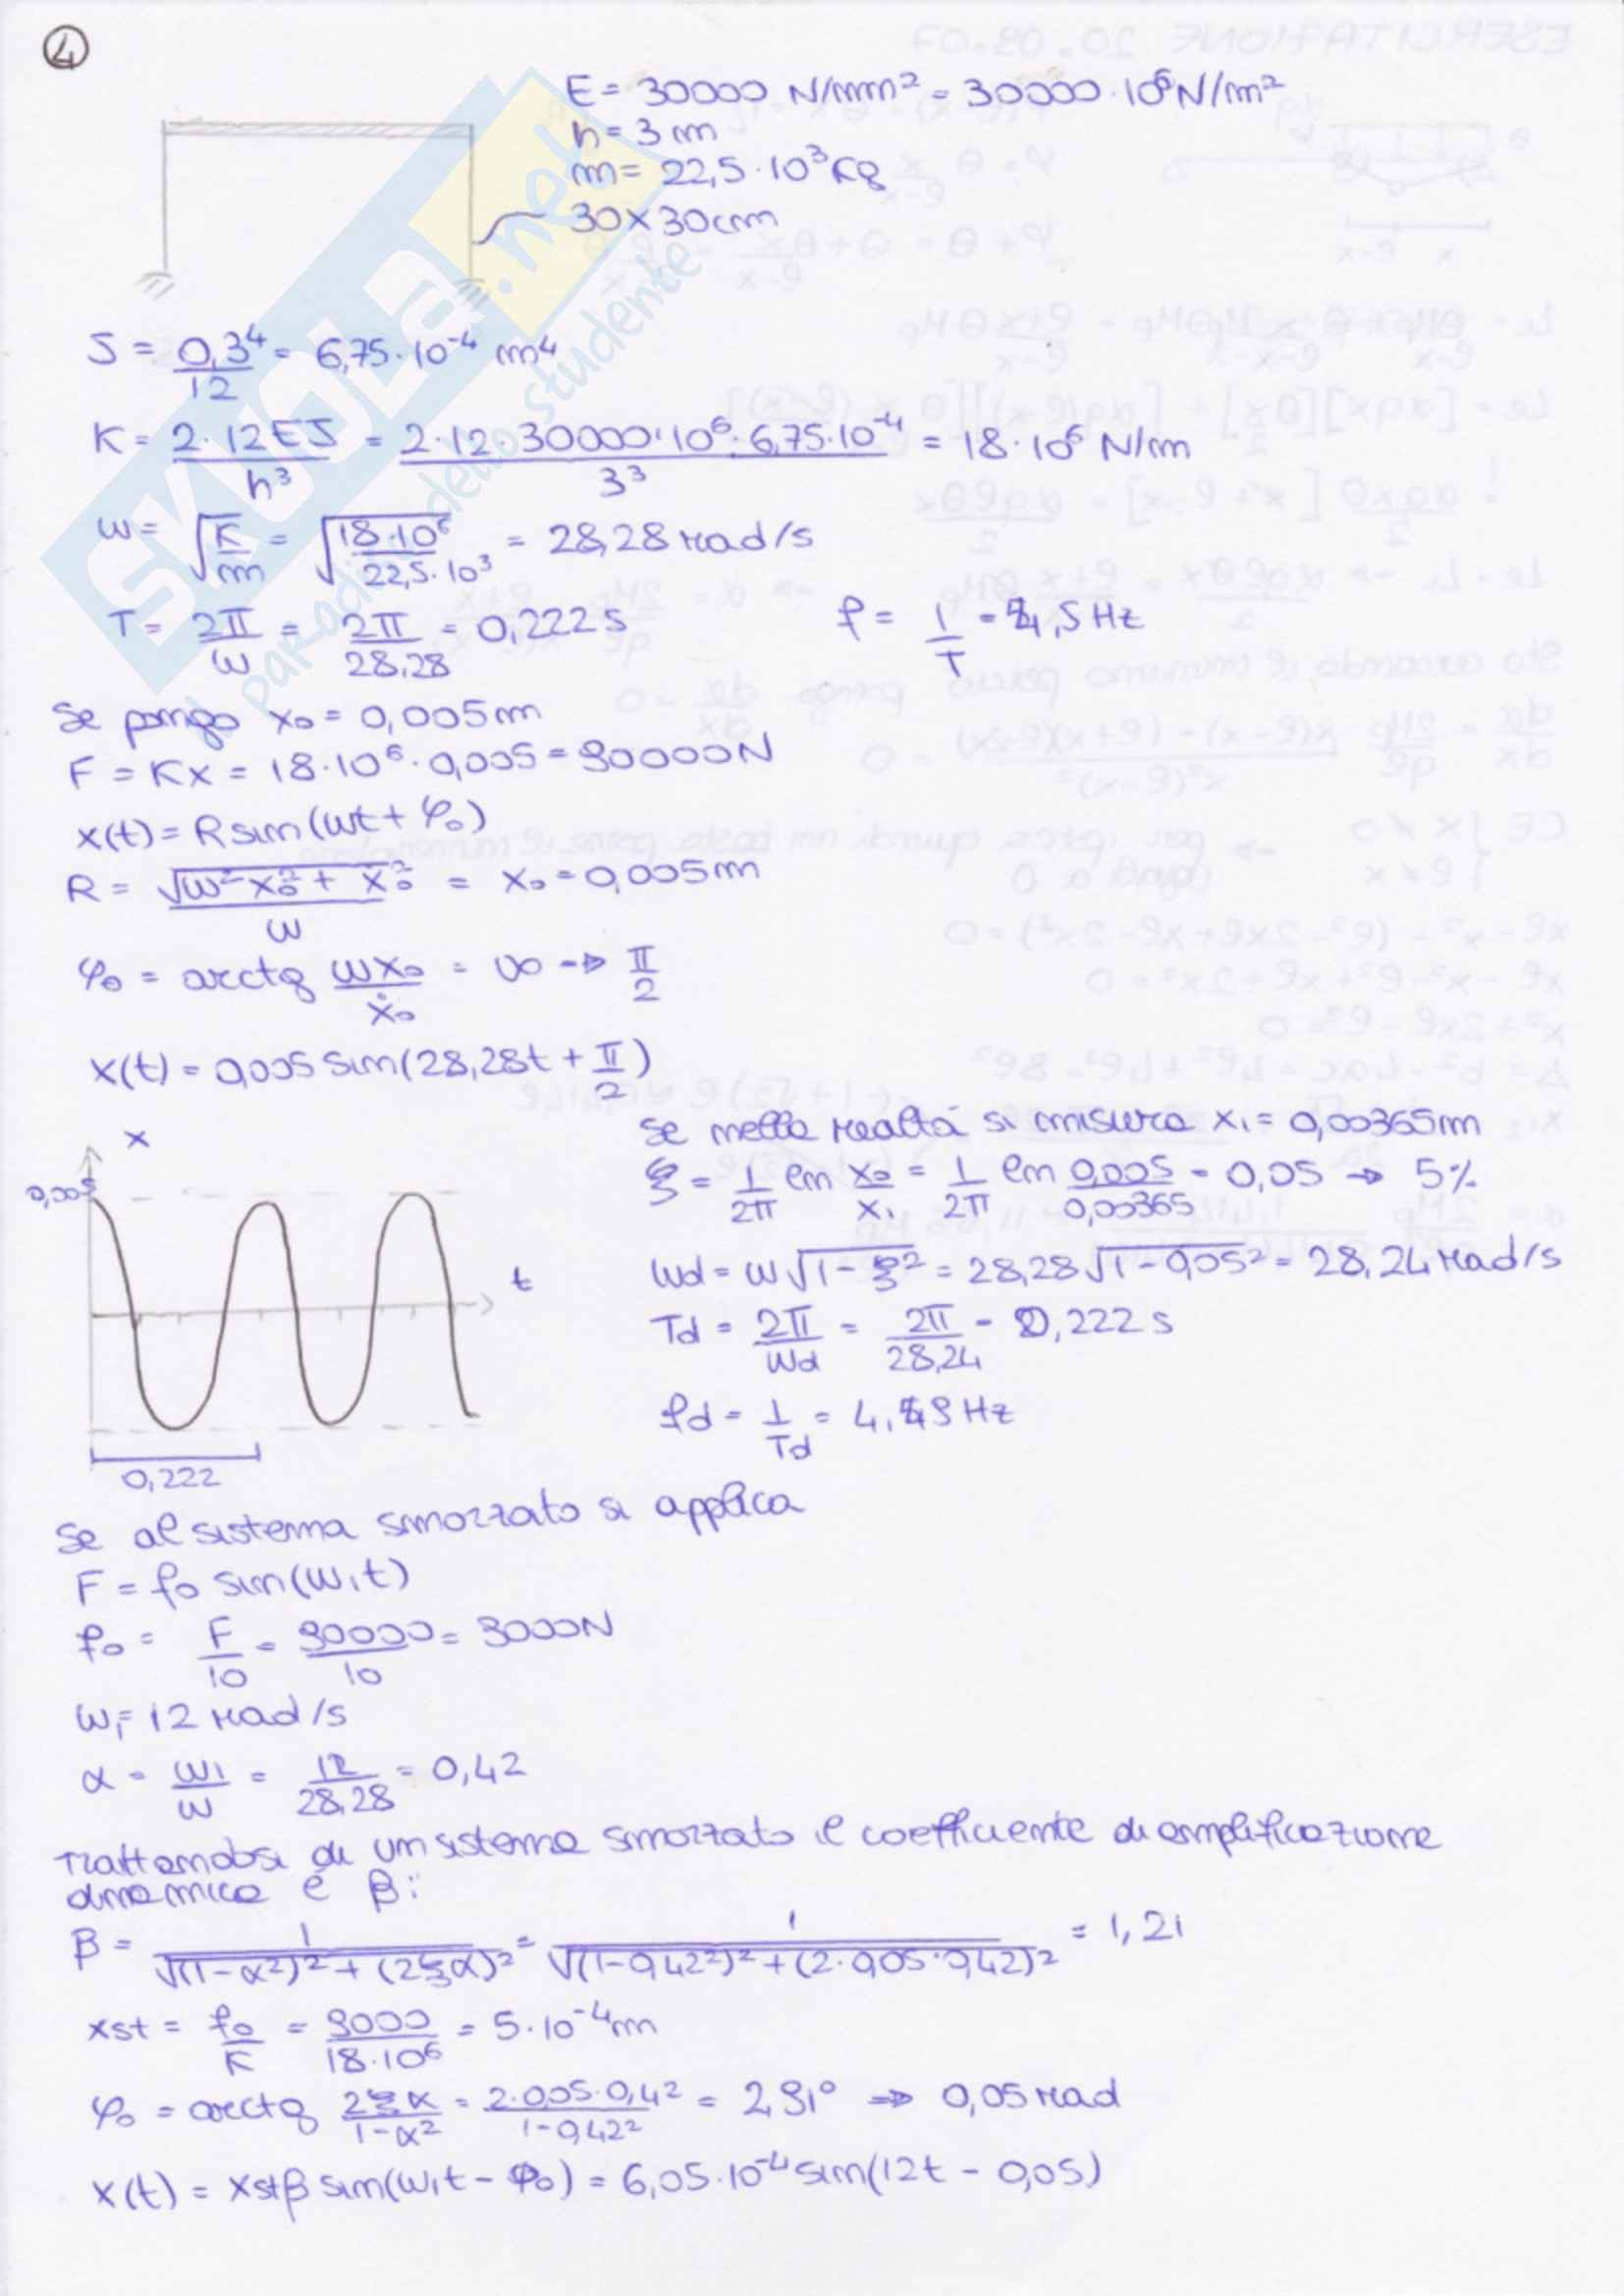 4
E = 30000 N/mm² = 30000·10⁶N/m²
h = 3 m
m = 22,5·10³Kg
30x30cm
SKUOLA.net
il paradiso dello studente
J = 0,3⁴/12 = 6,75·10⁻⁴ m⁴
K = 2·12EJ/h³ = 2·12·30000·10⁶·6,75·10⁻⁴/3³ = 18·10⁶ N/m
ω = √(K/m) = √(18·10⁶/22,5·10³) = 28,28 rad/s
T = 2π/ω = 2π/28,28 = 0,222 s f = 1/T = 4,5 Hz
Se pongo x₀ = 0,005m
F = Kx = 18·10⁶·0,005 = 90000N
x(t) = R sin(ωt + φ₀)
R = √(ω²x₀² + ẋ₀²)/ω = x₀ = 0,005m
φ₀ = arctg ωx₀/ẋ₀ = ∞ → π/2
x(t) = 0,005 sin(28,28t + π/2)
x
0,005
t
0,222
Se nella realtà si misura x₁ = 0,00365m
ξ = 1/2π ln x₀/x₁ = 1/2π ln 0,005/0,00365 = 0,05 → 5%
ωd = ω√(1-ξ²) = 28,28√(1-0,05²) = 28,24 rad/s
Td = 2π/ωd = 2π/28,24 = 0,222 s
fd = 1/Td = 4,49 Hz
Se al sistema smorzato si applica
F = f₀ sin(ω₁t)
f₀ = F/10 = 90000/10 = 9000N
ω₁ = 12 rad/s
α = ω₁/ω = 12/28,28 = 0,42
Trattandosi di un sistema smorzato il coefficiente di amplificazione
dinamica é β:
β = 1/√((1-α²)² + (2ξα)²) = 1/√((1-0,42²)² + (2·0,05·0,42)²) = 1,21
xst = f₀/K = 9000/18·10⁶ = 5·10⁻⁴m
φ₀ = arctg 2ξα/1-α² = 2·0,05·0,42/1-0,42² = 2,91° ⇒ 0,05 rad
x(t) = xstβ sin(ω₁t - φ₀) = 6,05·10⁻⁴ sin(12t - 0,05)